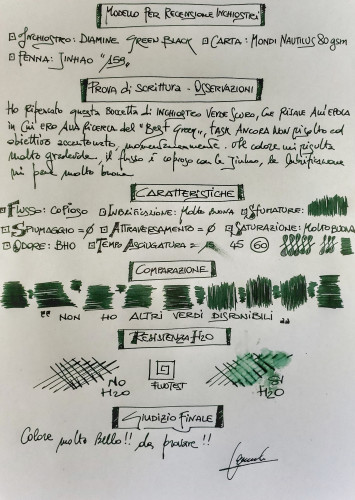 Modello Per Recensione Inchiostri
Inchiostro: Diamine Green Black Carta: Mondi Nautilus 80gsm
Penna: Jinhao "159"
Prova di scrittura - Osservazioni
Ho ripescato questa boccetta di inchiostro verde scuro, che risale all'epoca
in cui ero alla ricerca del "Best Green", task ancora non risolto ed
obiettivo accantonato, momentaneamente. Il colore mi risulta
molto gradevole, il flusso è copioso con la Jinhao, la lubrificazione
mi pare molto buona
Caratteristiche
Flusso: Copioso Lubrificazione: Molto buona Sfumature:
Spiumaggio = 0 Attraversamento = 0 Saturazione: Molto buona
Odore: BHO Tempo Asciugatura = 15 45 60
Comparazione
"" non ho altri verdi disponibili ""
Resistenza H2O
NO H2O
FLUOTEST
SI H2O
Giudizio Finale
Colore molto bello!! da provare!!